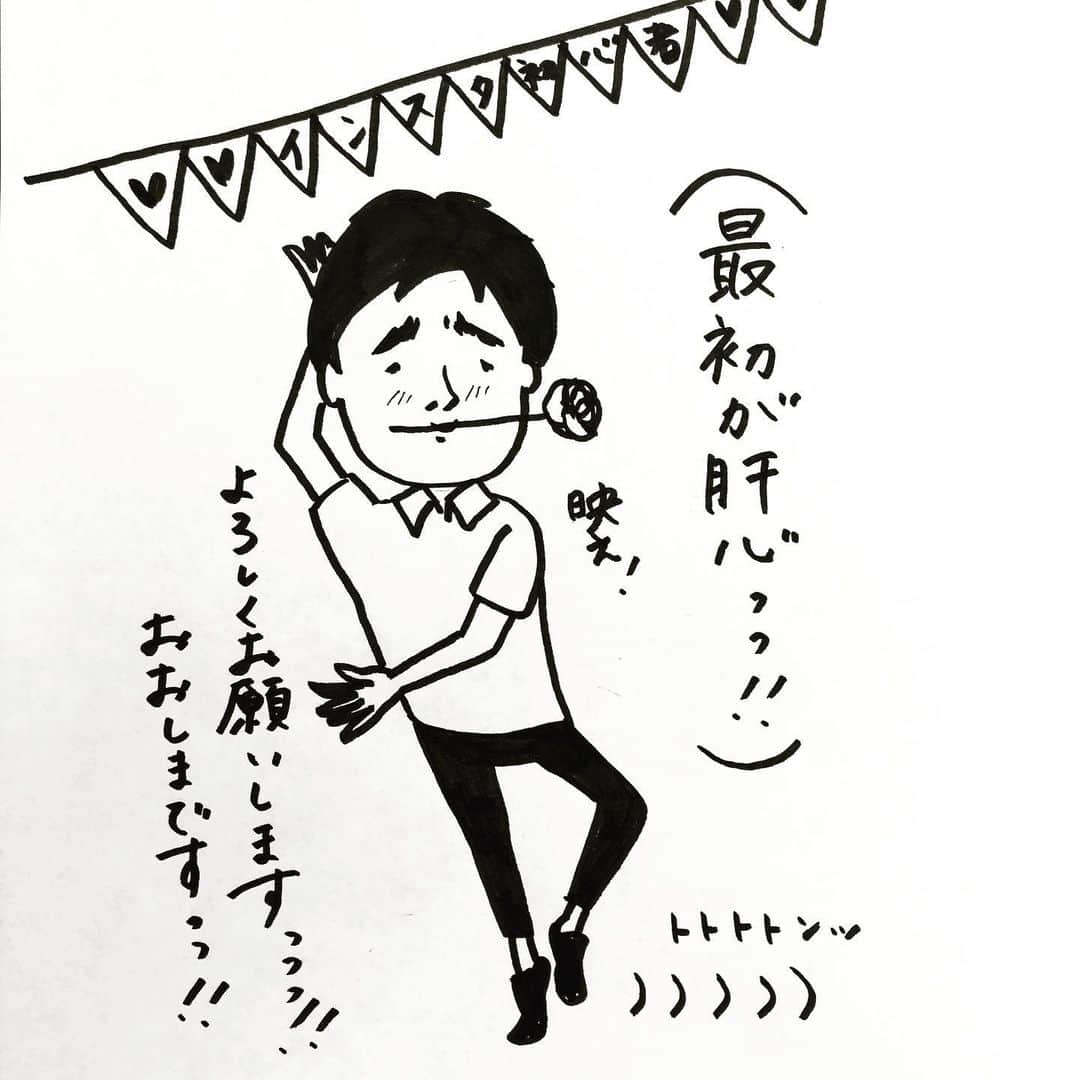 ♥♥インスタ初心者♥♥
(最初が肝心っっ!!)
映え!
よろしくお願いしますっっっ!!
おおしまですっっ!!
トトトトンッ